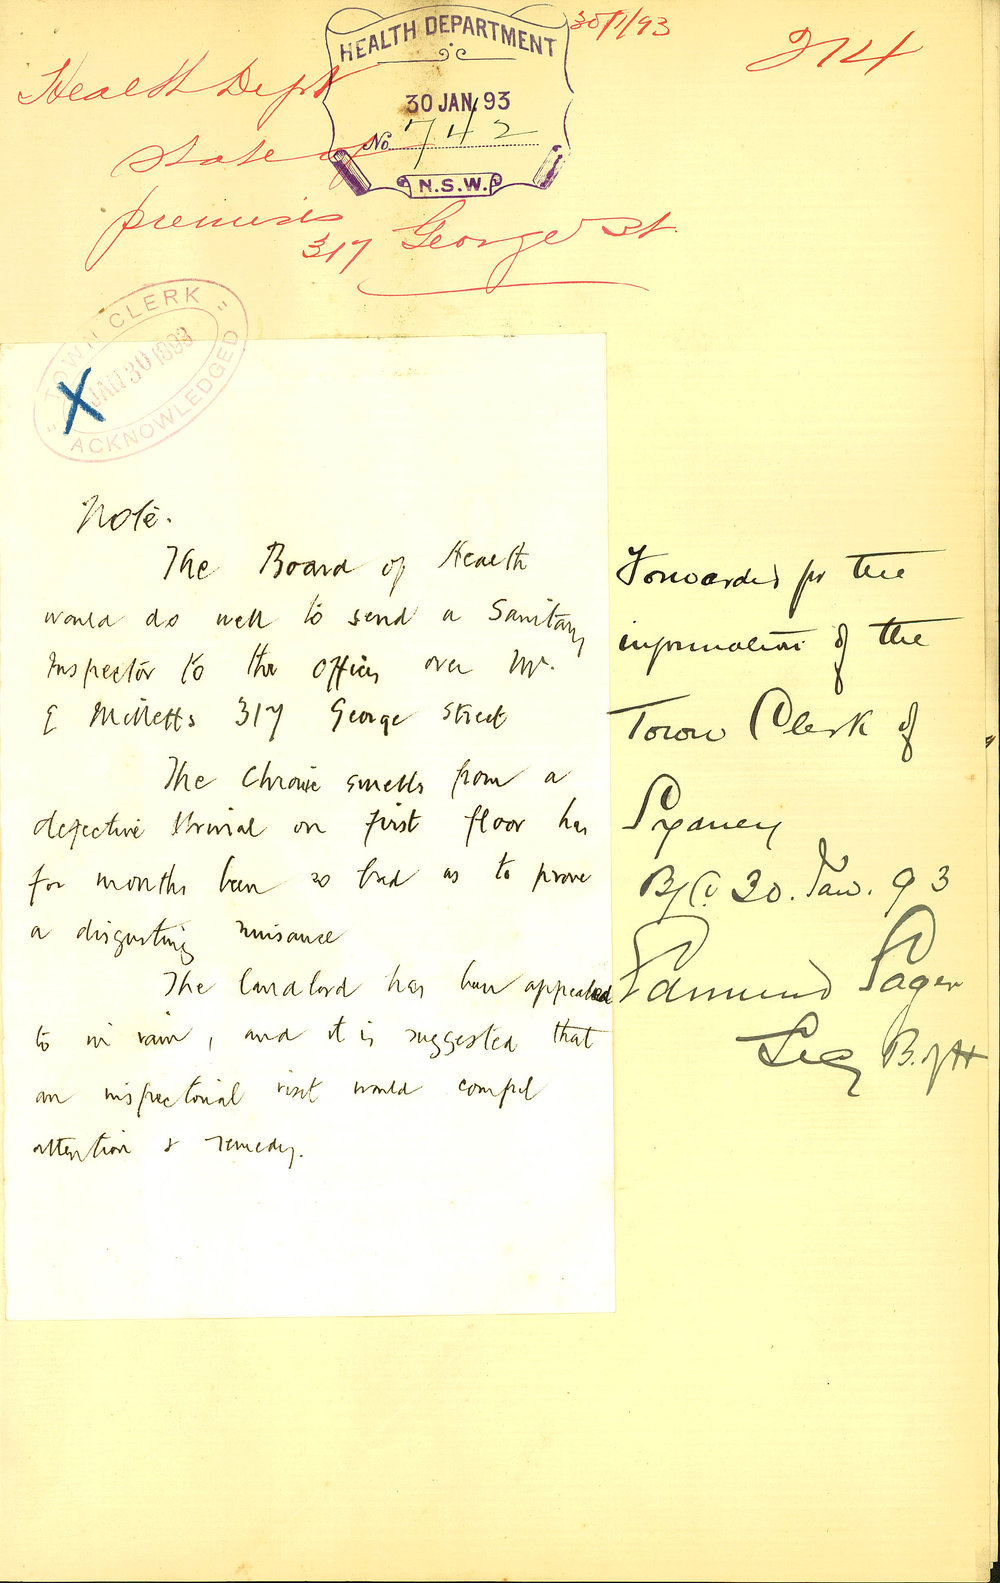 30/1/93
274
HEALTH DEPARTMENT
30 JAN. 93
No. 742
N.S.W.
Health Dept
state of
premises
317 George St.
TOWN CLERK
JAN 30 1893
ACKNOWLEDGED
X
Note.
The Board of Health
would do well to send a Sanitary
Inspector to the offices over Mr.
E Milletts 317 George Street
The Chronic smells from a
defective Urinal on first floor has
for months been so bad as to prove
a disgusting nuisance
The landlord has been appealed
to in vain, and it is suggested that
an inspectorial visit would compel
attention & remedy.
Forwarded for the
information of the
Town Clerk of
Sydney
B.C. 30. Jan. 93
Edmund Sager
Sec B. of H